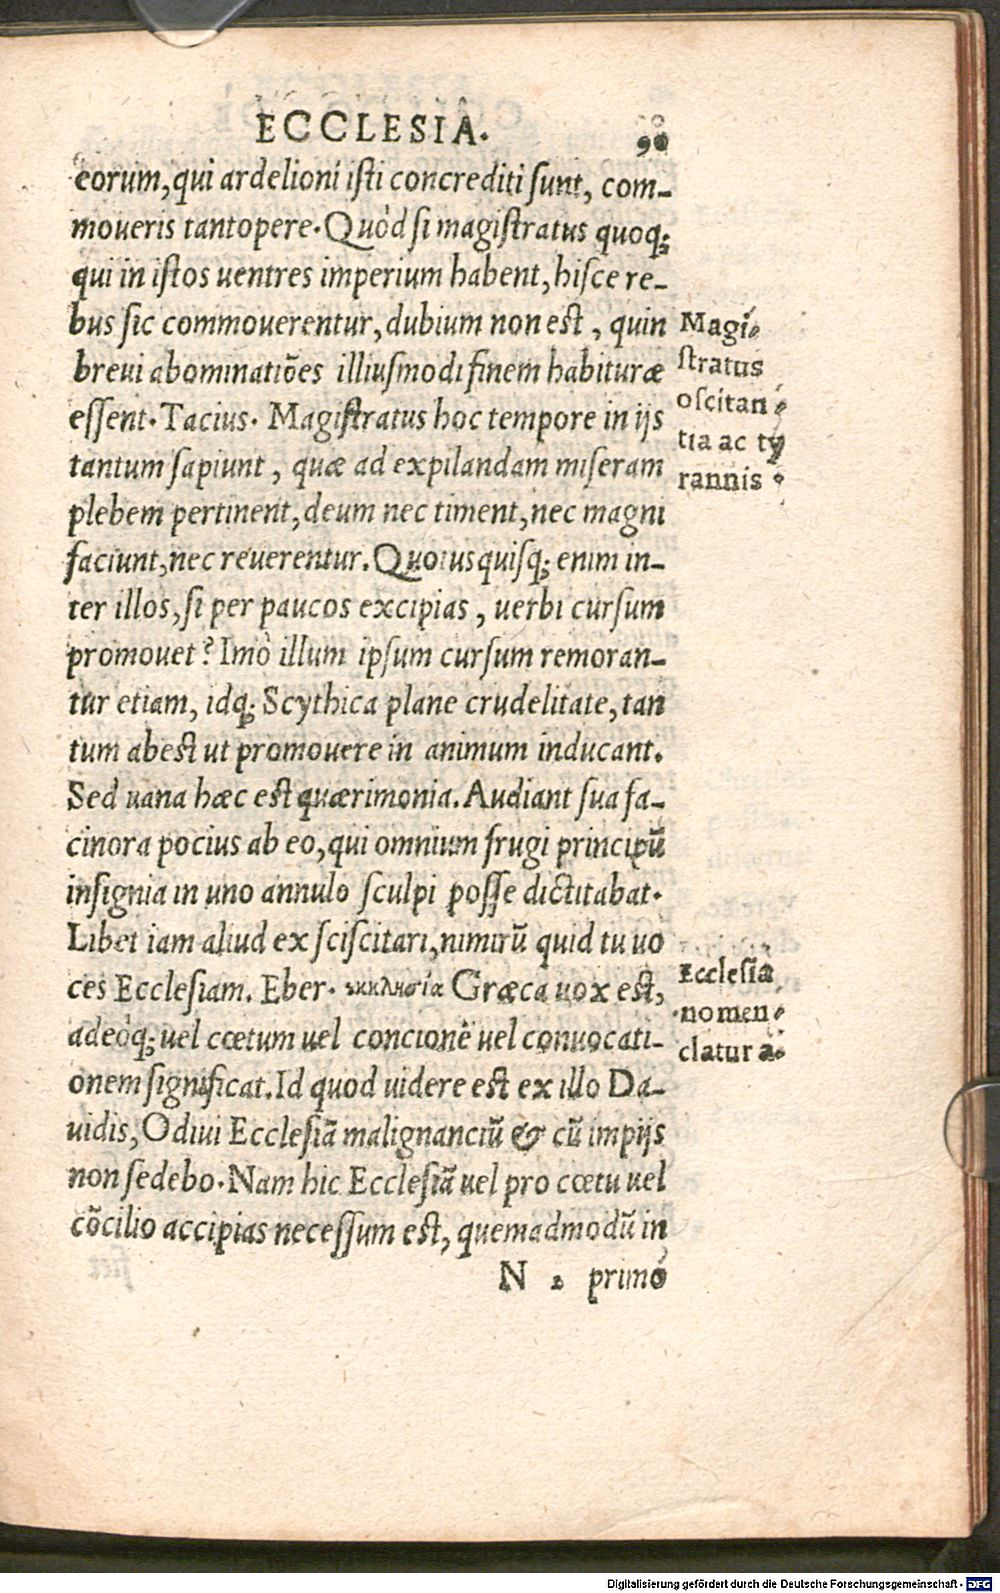 ECCLESIA. 98
eorum, qui ardelioni isti concrediti sunt, com-
moueris tantopere. Quòd si magistratus quoq;
qui in istos uentres imperium habent, hisce re-
bus sic commouerentur, dubium non est, quin
breui abominatiões illiusmodi finem habituræ
essent. Tacius. Magistratus hoc tempore in ijs
tantum sapiunt, quæ ad expilandam miseram
plebem pertinent, deum nec timent, nec magni
faciunt, nec reuerentur. Quotusquisq; enim in-
ter illos, si per paucos excipias, uerbi cursum
promouet? Imò illum ipsum cursum remoran-
tur etiam, idq; Scythica plane crudelitate, tan
tum abest ut promouere in animum inducant.
Sed uana hæc est quærimonia. Audiant sua fa-
cinora pocius ab eo, qui omnium frugi principũ
insignia in uno annulo sculpi posse dictitabat.
Libet iam aliud ex sciscitari, nimirũ quid tu uo
ces Ecclesiam. Eber. ἐκκλησία Græca uox est,
adeòq; uel cœtum uel concionẽ uel conuocati-
onem significat. Id quod uidere est ex illo Da-
uidis, Odiui Ecclesiã malignanciũ & cũ impijs
non sedebo. Nam hic Ecclesiã uel pro cœtu uel
cõcilio accipias necessum est, quemadmodũ in
N 2 primo
Magi-
stratus
oscitan-
tia ac ty
rannis.
Ecclesia
nomen-
clatura.
Digitalisierung gefördert durch die Deutsche Forschungsgemeinschaft - DFG